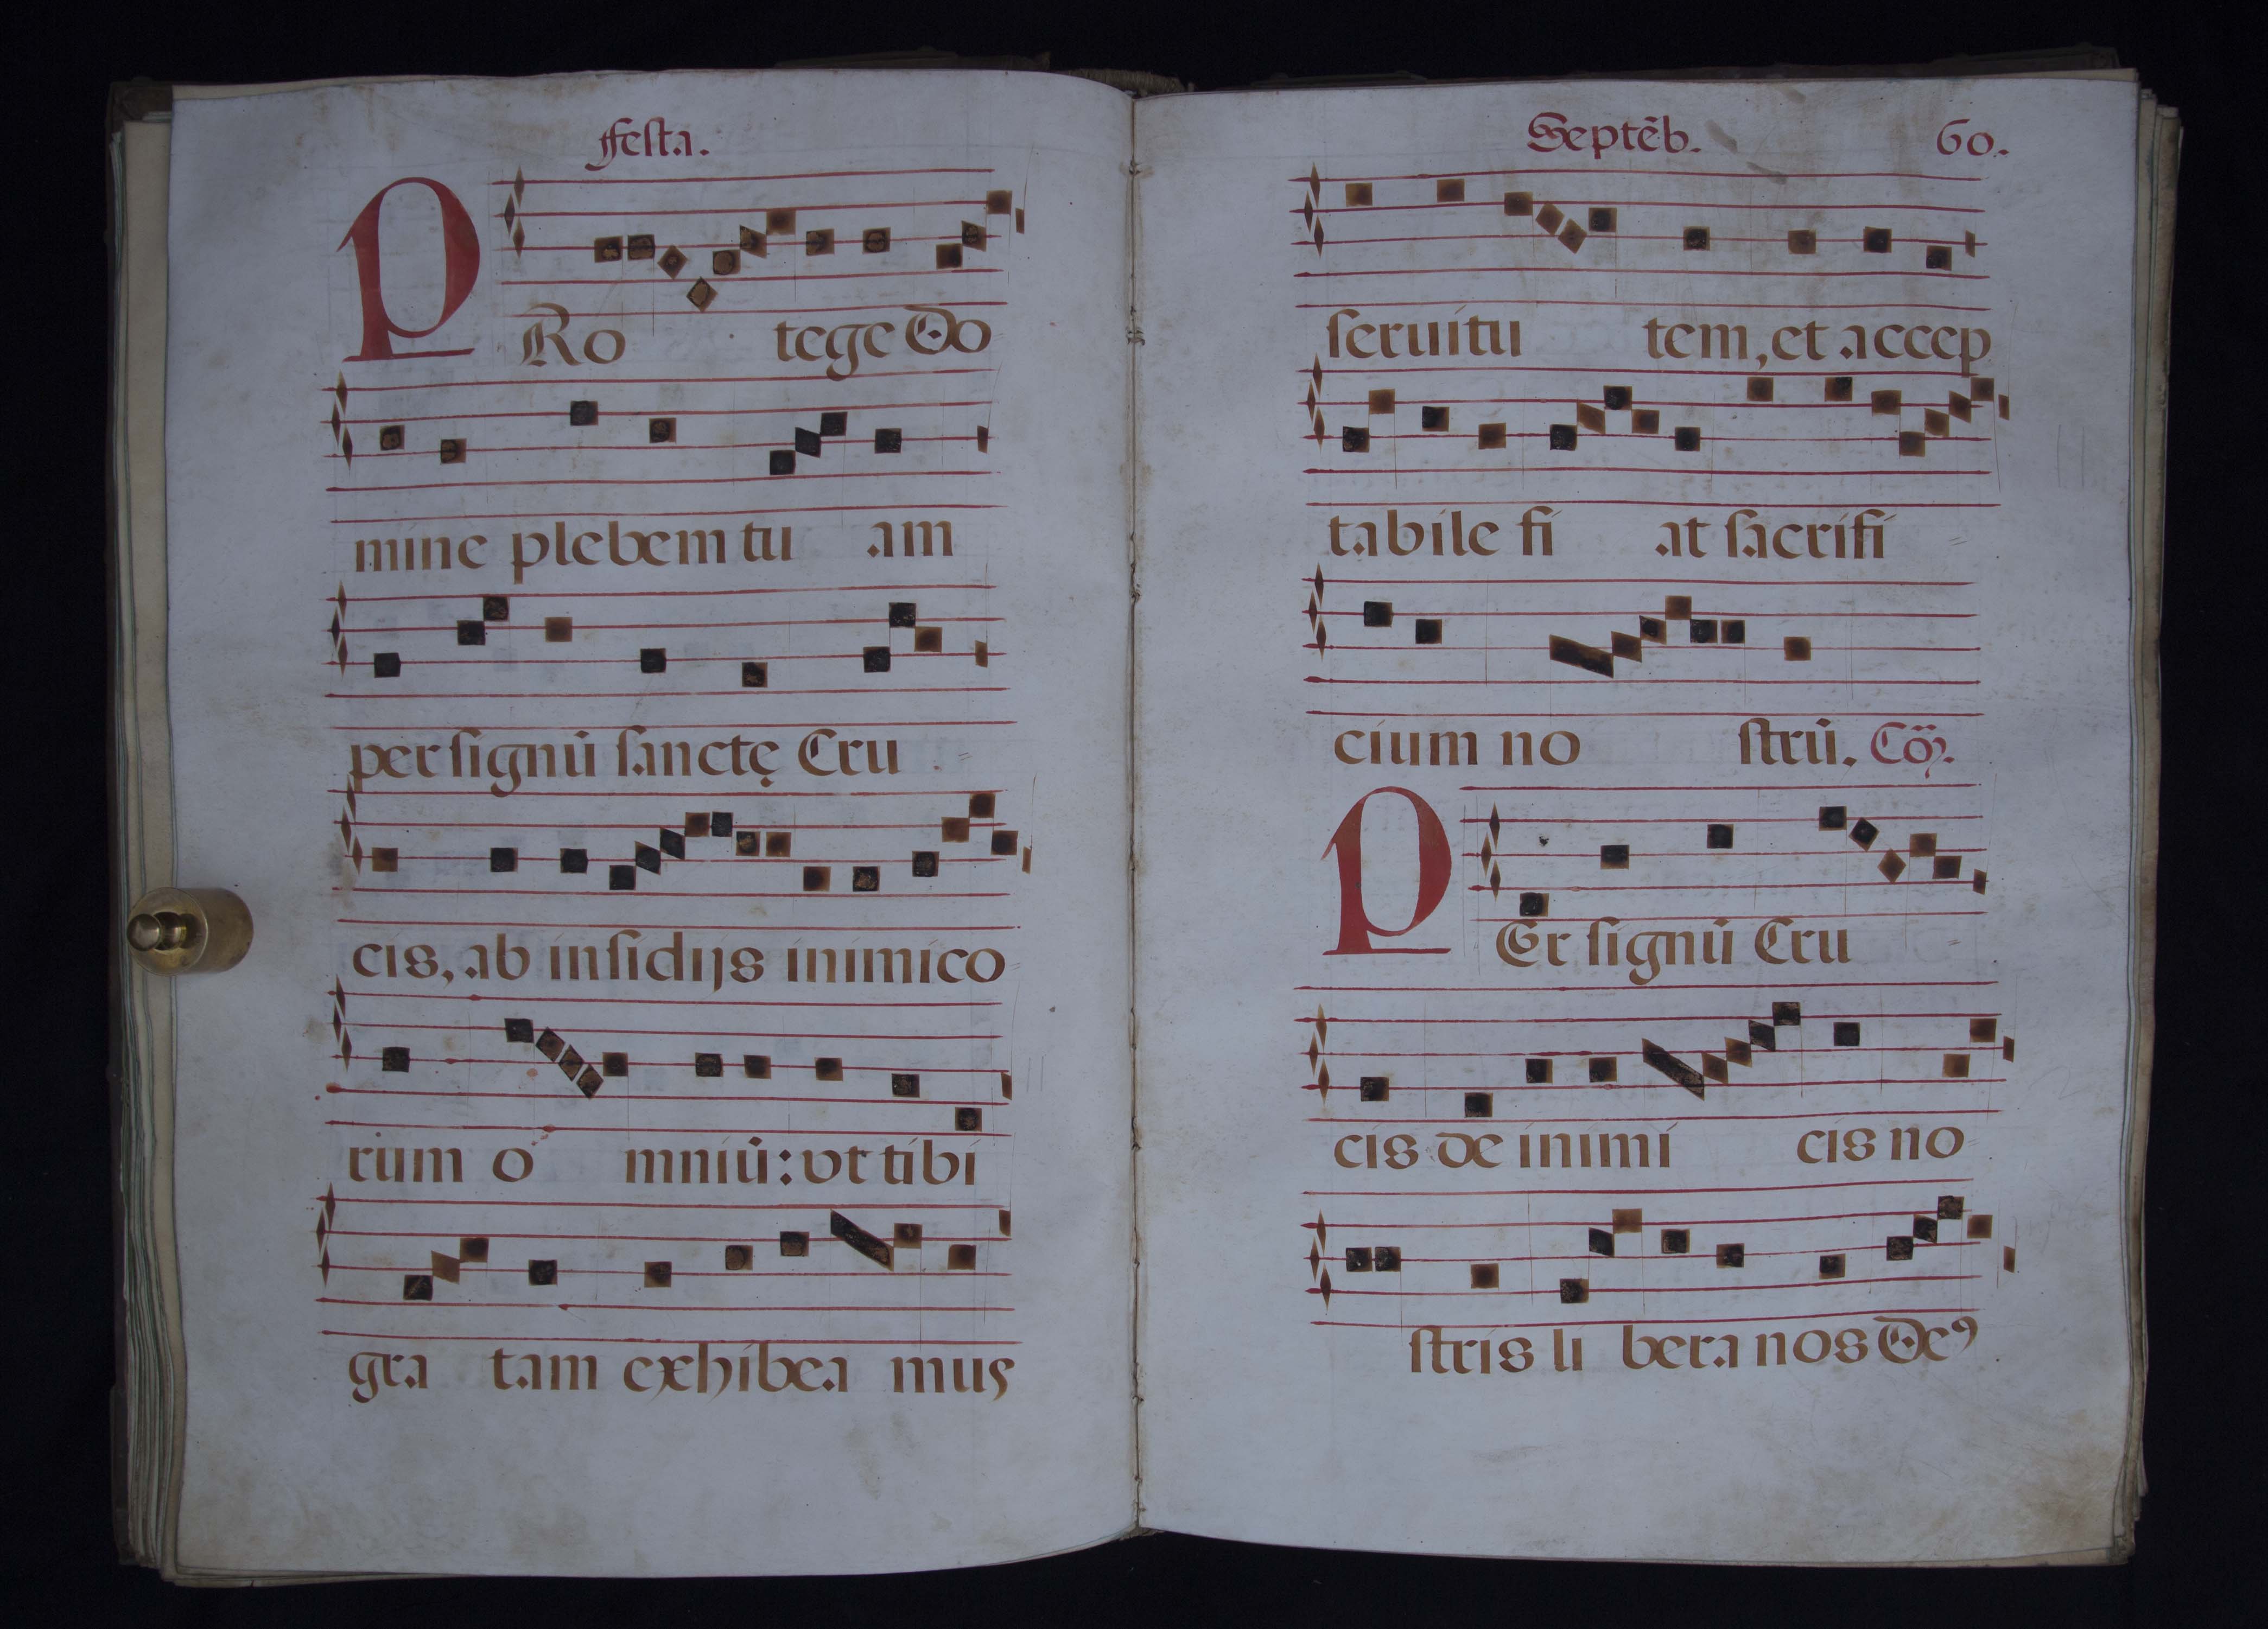 Festa.
PRo tege Do
mine plebem tu am
per signũ sanctę Cru
cis, ab insidijs inimico
rum o mniũ: vt tibi
gra tam exhibea mus
Septẽb. 60.
seruitu tem, et accep
tabile fi at sacrifi
cium no strũ.
PEr signũ Cru
cis de inimi cis no
stris li bera nos Deꝰ